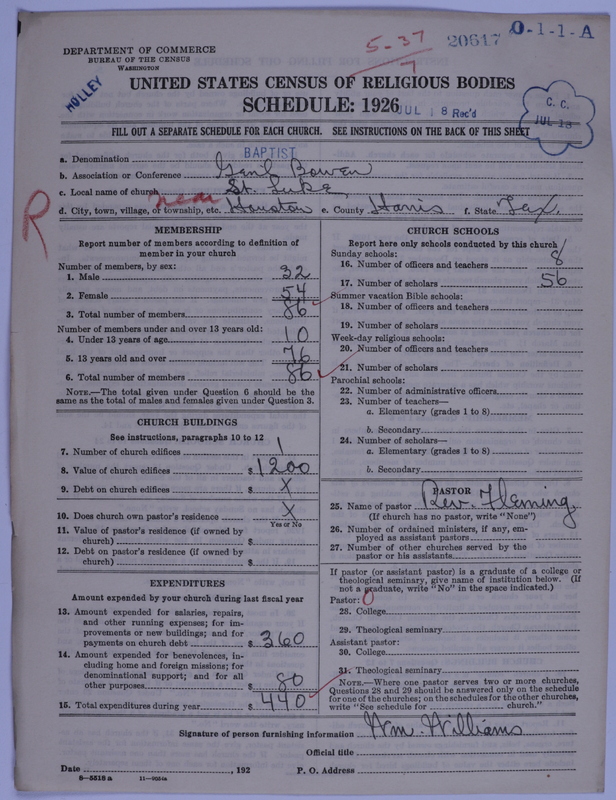 DEPARTMENT OF COMMERCE
BUREAU OF THE CENSUS
WASHINGTON
5-37
7
20617
0-1-1-A
MOLLEY
UNITED STATES CENSUS OF RELIGIOUS BODIES
SCHEDULE: 1926
JUL 18 Rec'd
C. C.
JUL 18
FILL OUT A SEPARATE SCHEDULE FOR EACH CHURCH. SEE INSTRUCTIONS ON THE BACK OF THIS SHEET
a. Denomination BAPTIST
b. Association or Conference Genl Bowen
c. Local name of church St. Luke
near
d. City, town, village, or township, etc. Houston e. County Harris f. State Tex.
R
MEMBERSHIP
Report number of members according to definition of
member in your church
Number of members, by sex:
1. Male 32
2. Female 54
3. Total number of members 86
Number of members under and over 13 years old:
4. Under 13 years of age 10
5. 13 years old and over 76
6. Total number of members 86
NOTE.—The total given under Question 6 should be
same as the total of males and females given under Question 3.
CHURCH BUILDINGS
See instructions, paragraphs 10 to 12
7. Number of church edifices 1
8. Value of church edifices $ 1200
9. Debt on church edifices $ X
10. Does church own pastor's residence X
Yes or No
11. Value of pastor's residence (if owned by
church) $
12. Debt on pastor's residence (if owned by
church) $
EXPENDITURES
Amount expended by your church during last fiscal year
13. Amount expended for salaries, repairs,
and other running expenses; for im-
provements or new buildings; and for
payments on church debt $ 360
14. Amount expended for benevolences, in-
cluding home and foreign missions; for
denominational support; and for all
other purposes $ 80
15. Total expenditures during year $ 440
CHURCH SCHOOLS
Report here only schools conducted by this church
Sunday schools:
16. Number of officers and teachers 8
17. Number of scholars 56
Summer vacation Bible schools:
18. Number of officers and teachers
19. Number of scholars
Week-day religious schools:
20. Number of officers and teachers
21. Number of scholars
Parochial schools:
22. Number of administrative officers
23. Number of teachers—
a. Elementary (grades 1 to 8)
b. Secondary
24. Number of scholars—
a. Elementary (grades 1 to 8)
b. Secondary
PASTOR
25. Name of pastor Rev. Fleming
(If church has no pastor, write "None")
26. Number of ordained ministers, if any, em-
ployed as assistant pastors
27. Number of other churches served by the
pastor or his assistants
If pastor (or assistant pastor) is a graduate of a college or
theological seminary, give name of institution below. (If
not a graduate, write "No" in the space indicated.)
Pastor: 0
28. College
29. Theological seminary
Assistant pastor:
30. College
31. Theological seminary
NOTE.—Where one pastor serves two or more churches,
Questions 28 and 29 should be answered only on the schedule
for one of the churches; on the schedules for the other churches,
write "See schedule for church."
Signature of person furnishing information Wm. Williams
Official title
Date , 192 P. O. Address
8—5518 a 11—9034a